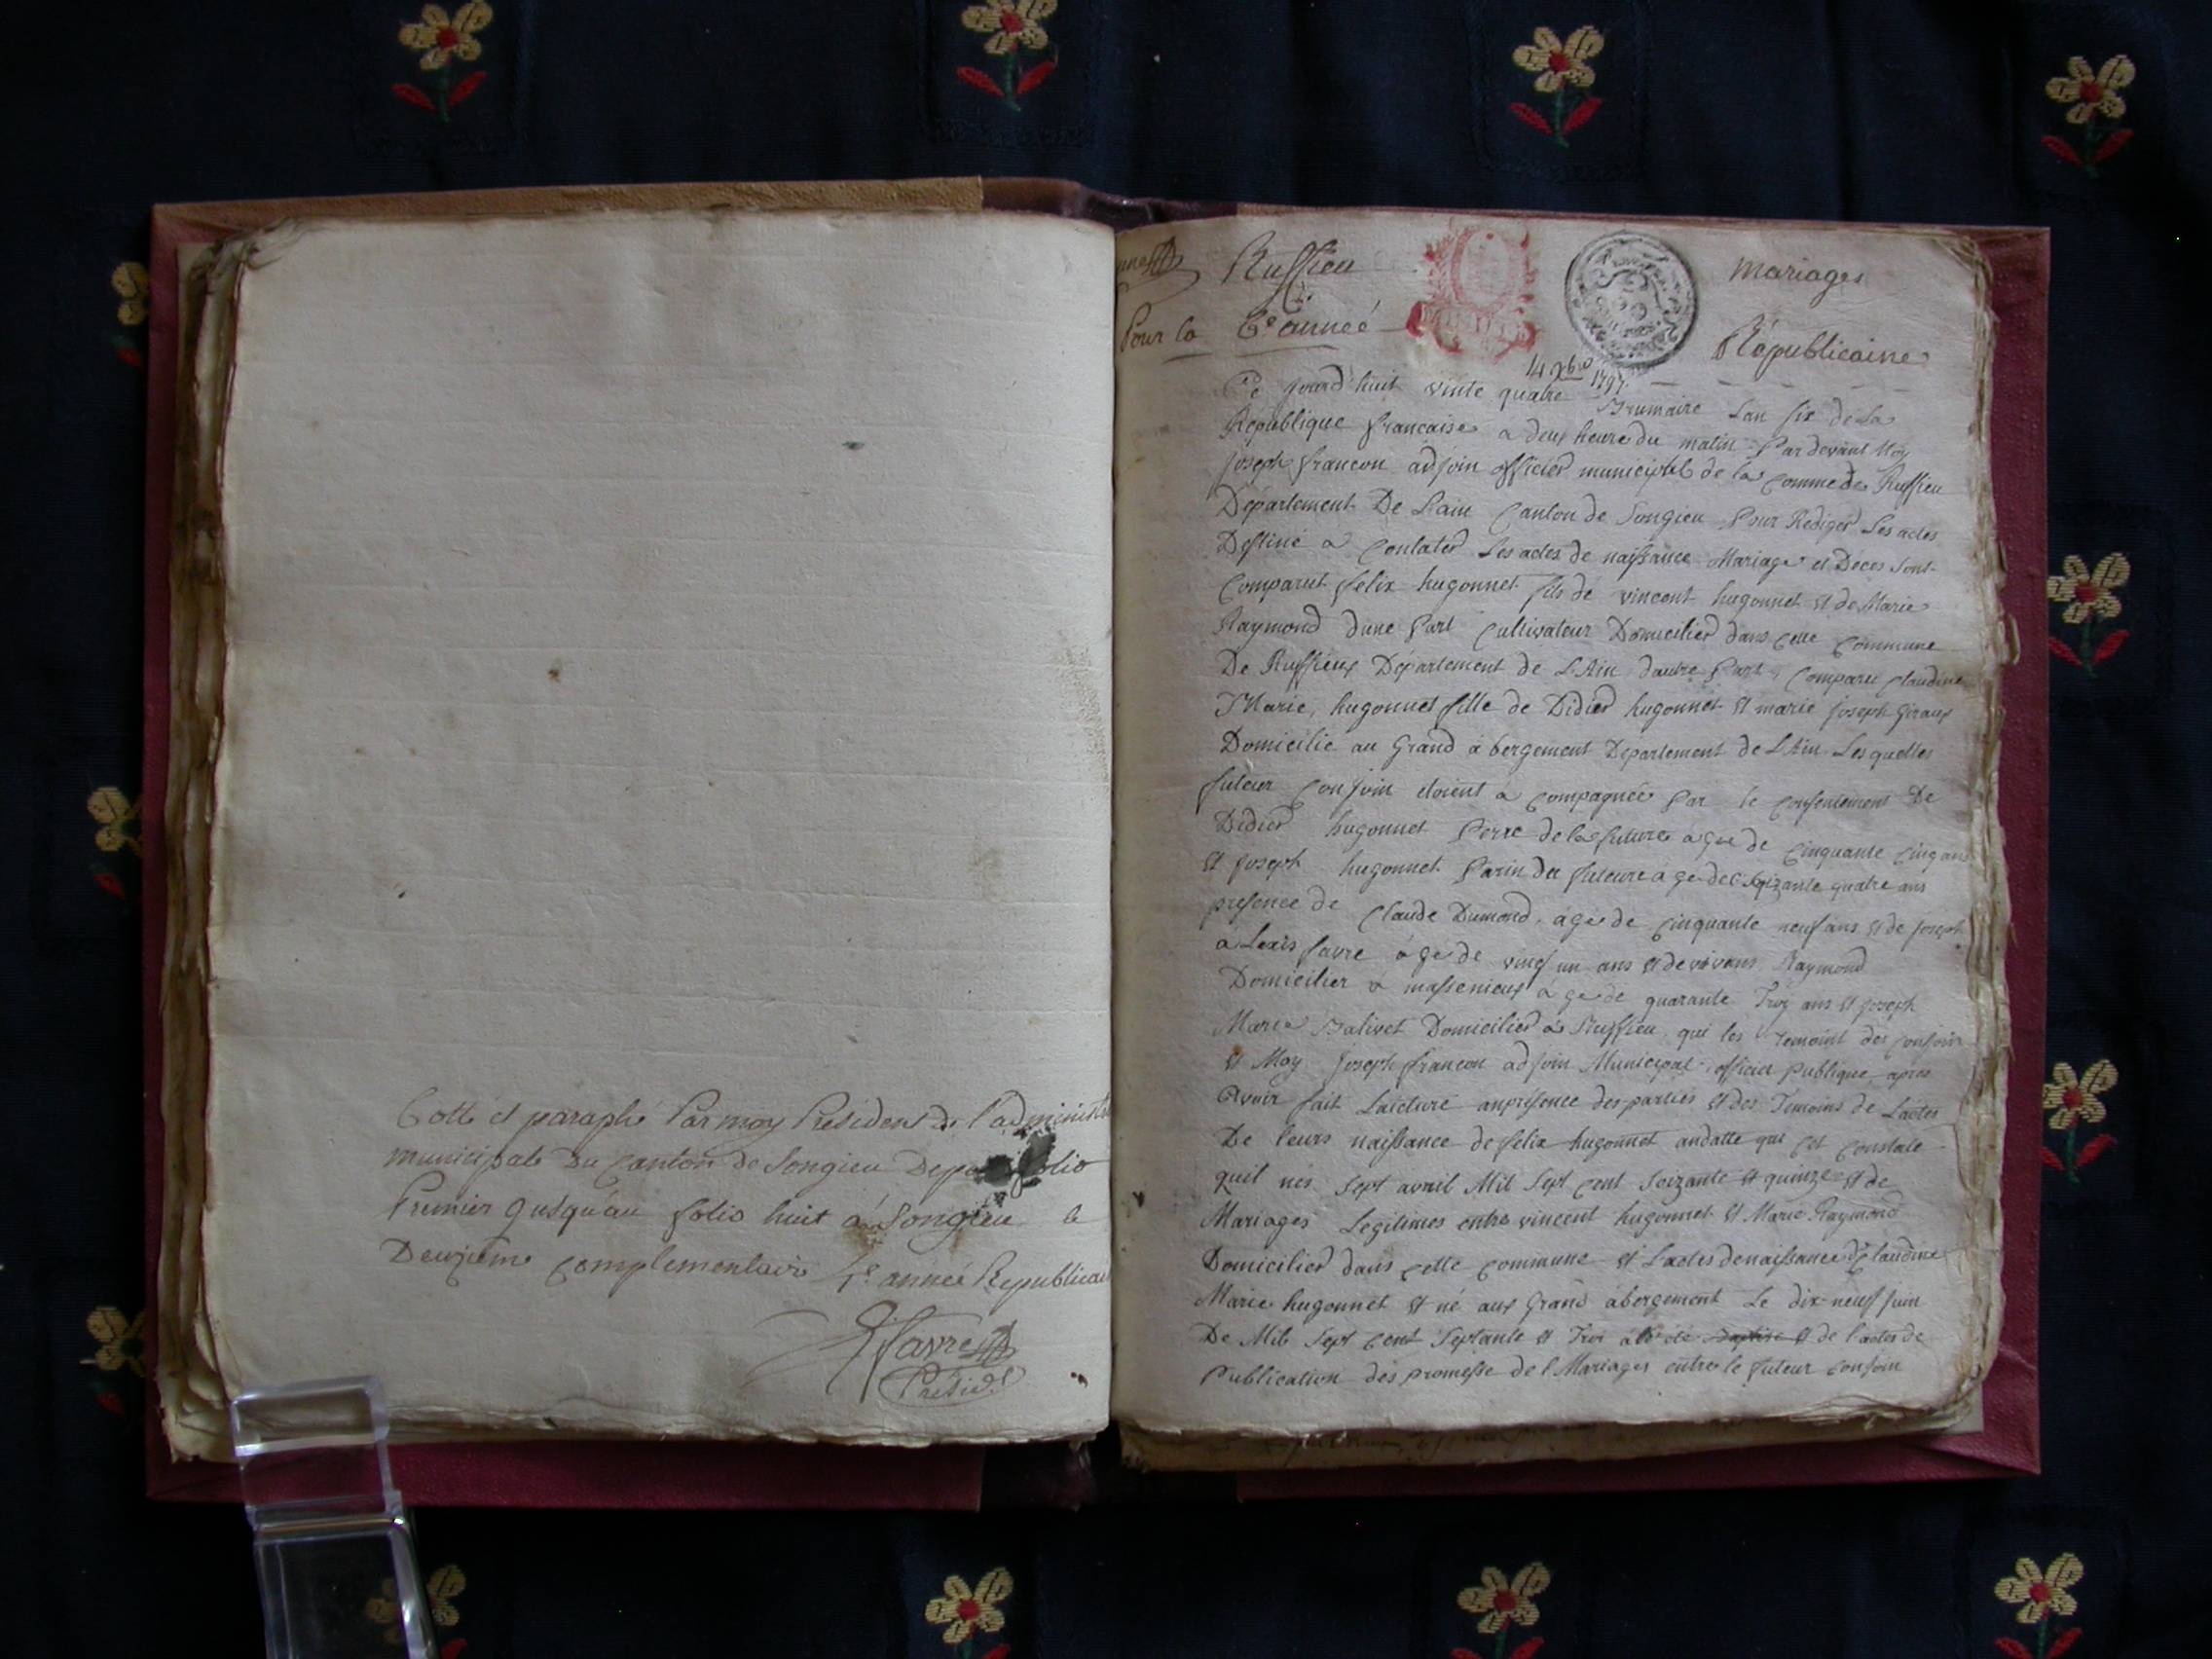 Cotté et paraphé Par moy Président de l'administr
municipale du Canton de Songieu Depuis folio
Premier jusqu'au folio huit à Songieu le
Deuxieme complementaire 5e année Republicai
Favre
Présidt
Ruffieu mariages
Pour la 6e année Républicaine
14 9bre 1797
Ce jourd'huit vinte quatre Brumaire Lan six de La
République francaise a deux heure du matin Par devant Moy
joseph francon adjoin officier municipal de la Comme de Ruffieu
Département De Lain Canton de Songieu Pour Rediger Les actes
Destiné a Contater Les actes de naissance Mariage et Déces sont
Comparut felix hugonnet fils de vincent hugonnet et de Marie
Raymond dune Part Cultivateur Domicilier dans cette Commune
De Ruffieux Département de L'Ain dautre Part, Comparu Claudine
Marie, hugonnet fille de Didier hugonnet et marie joseph Giraux
Domicilié au Grand abergement Département de L'Ain Les quelles
futeur Conjoin etoient a Compagnée Par le Consentement De
Didier hugonnet Perre de la future agée de Cinquante Cinq ans
et joseph hugonnet Parin du futeure age de soizante quatre ans
présence de Claude Dumond agée de Cinquante neuf ans et de joseph
a Lexis favre age de vingt un ans et de vivans Raymond
Domicilier a massenieux age de quarante Troy ans et joseph
Marie Balivet Domicilier a Ruffieu qui les Temoint des Conjoin
et Moy joseph francon adjoin Municipal officier publique apres
Avoir fait Laicture anprésence des parties et des Témoins de Lactes
De leurs naissance de felix hugonnet andatte que Cet Constate
quil nés sept avril Mil Sept Cent Soizante et quinze et de
Mariages Legitimes entre vincent hugonnet et Marie Raymond
Domicilier dans Cette Commune et Lactes de naissance de Claudine
Marie hugonnet et né aux Grand abergement Le dix neuf juin
De Mil Sept Cent Septante et Troi a été baptise et de lactes de
Publication des promesse de l Mariages entre le futeur Conjoin